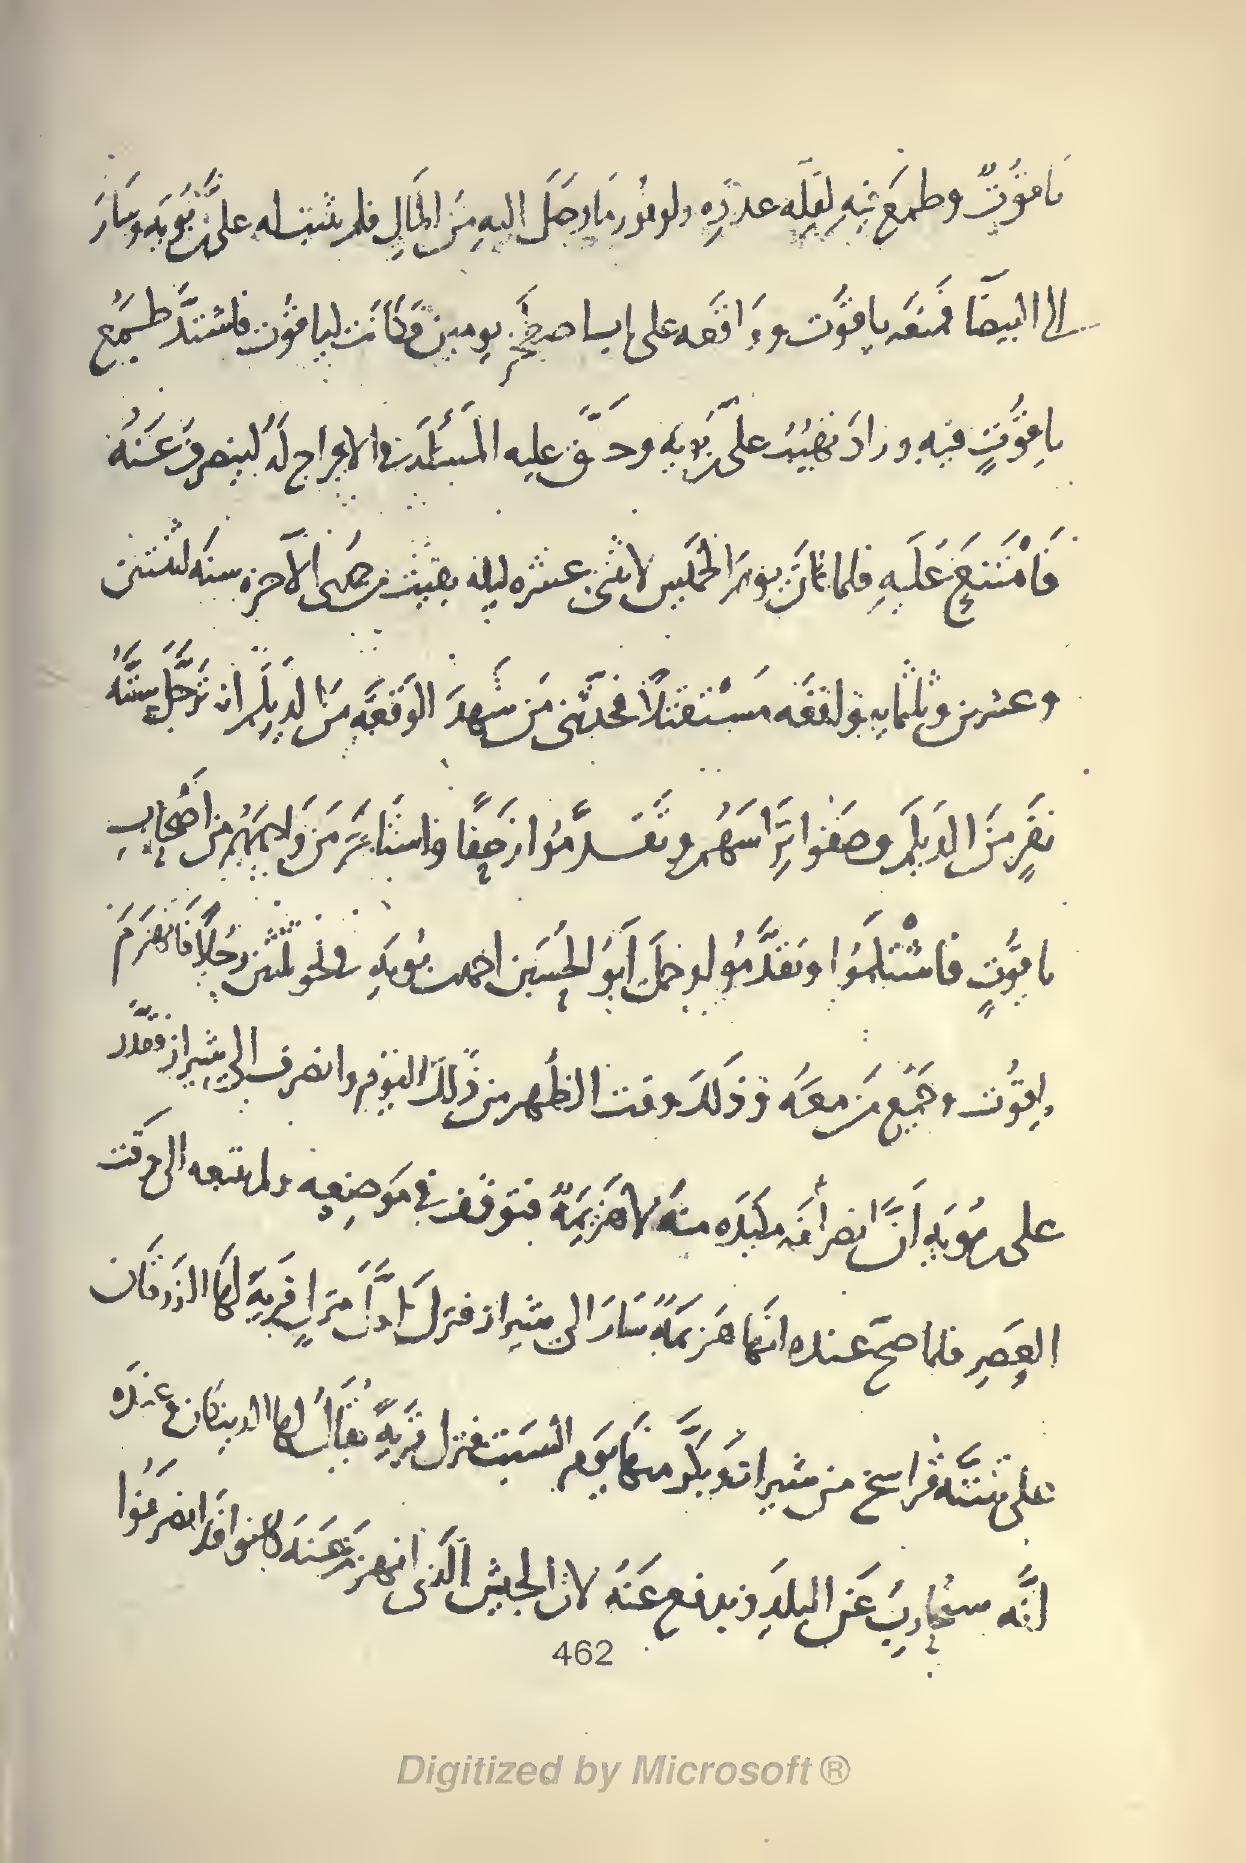 ياقوت وطمع فيه لقلة عدده ولوفور ما وصل اليه من المال فلم يثبت له على بن بويه وسار
الى البيضا فمنعه ياقوت وواقعه على باب اصطخر يومين وكانت لياقوت فاشتد طمع
ياقوت فيه وزاد تهيب على بن بويه وحقق عليه المسئلة في الافراج له لينصرف عنه
فامتنع عليه فلما كان يوم الخميس لاثنى عشره ليله بقيت من جمدى الآخره سنه اثنتين
وعشرين وثلثمايه تواقعه مستقتلا فحدثنى من شهد الوقعه من الديلم انه ترجل سته
نفر من الديلم وصفوا تراسهم وتقدموا زحفا واستاخر من وليهم من اصحاب
ياقوت فاستلحموا وتقدموا وحمل ابو الحسين احمد بن بويه في نحو ثلثين رجلا فانهزم
ياقوت وجميع من معه وذلك وقت الظهر من ذلك اليوم وانصرف الى شيراز وقدر
على بن بويه ان انصرافه مكيده منه لا هزيمة فتوقف في موضعه ولم يتبعه الى وقت
العصر فلما صح عنده انها هزيمة سار الى شيراز فنزل اول منزل قرية لها الزرقان
على سته فراسخ من شيراز وبكر منها يوم السبت فنزل قرية يقال لها الدينكان وعنده
انه سيحارب عن البلد ويدفع عنه لان الجيش الذى انهزم عنه كانوا قد انصرفوا
462
Digitized by Microsoft ®